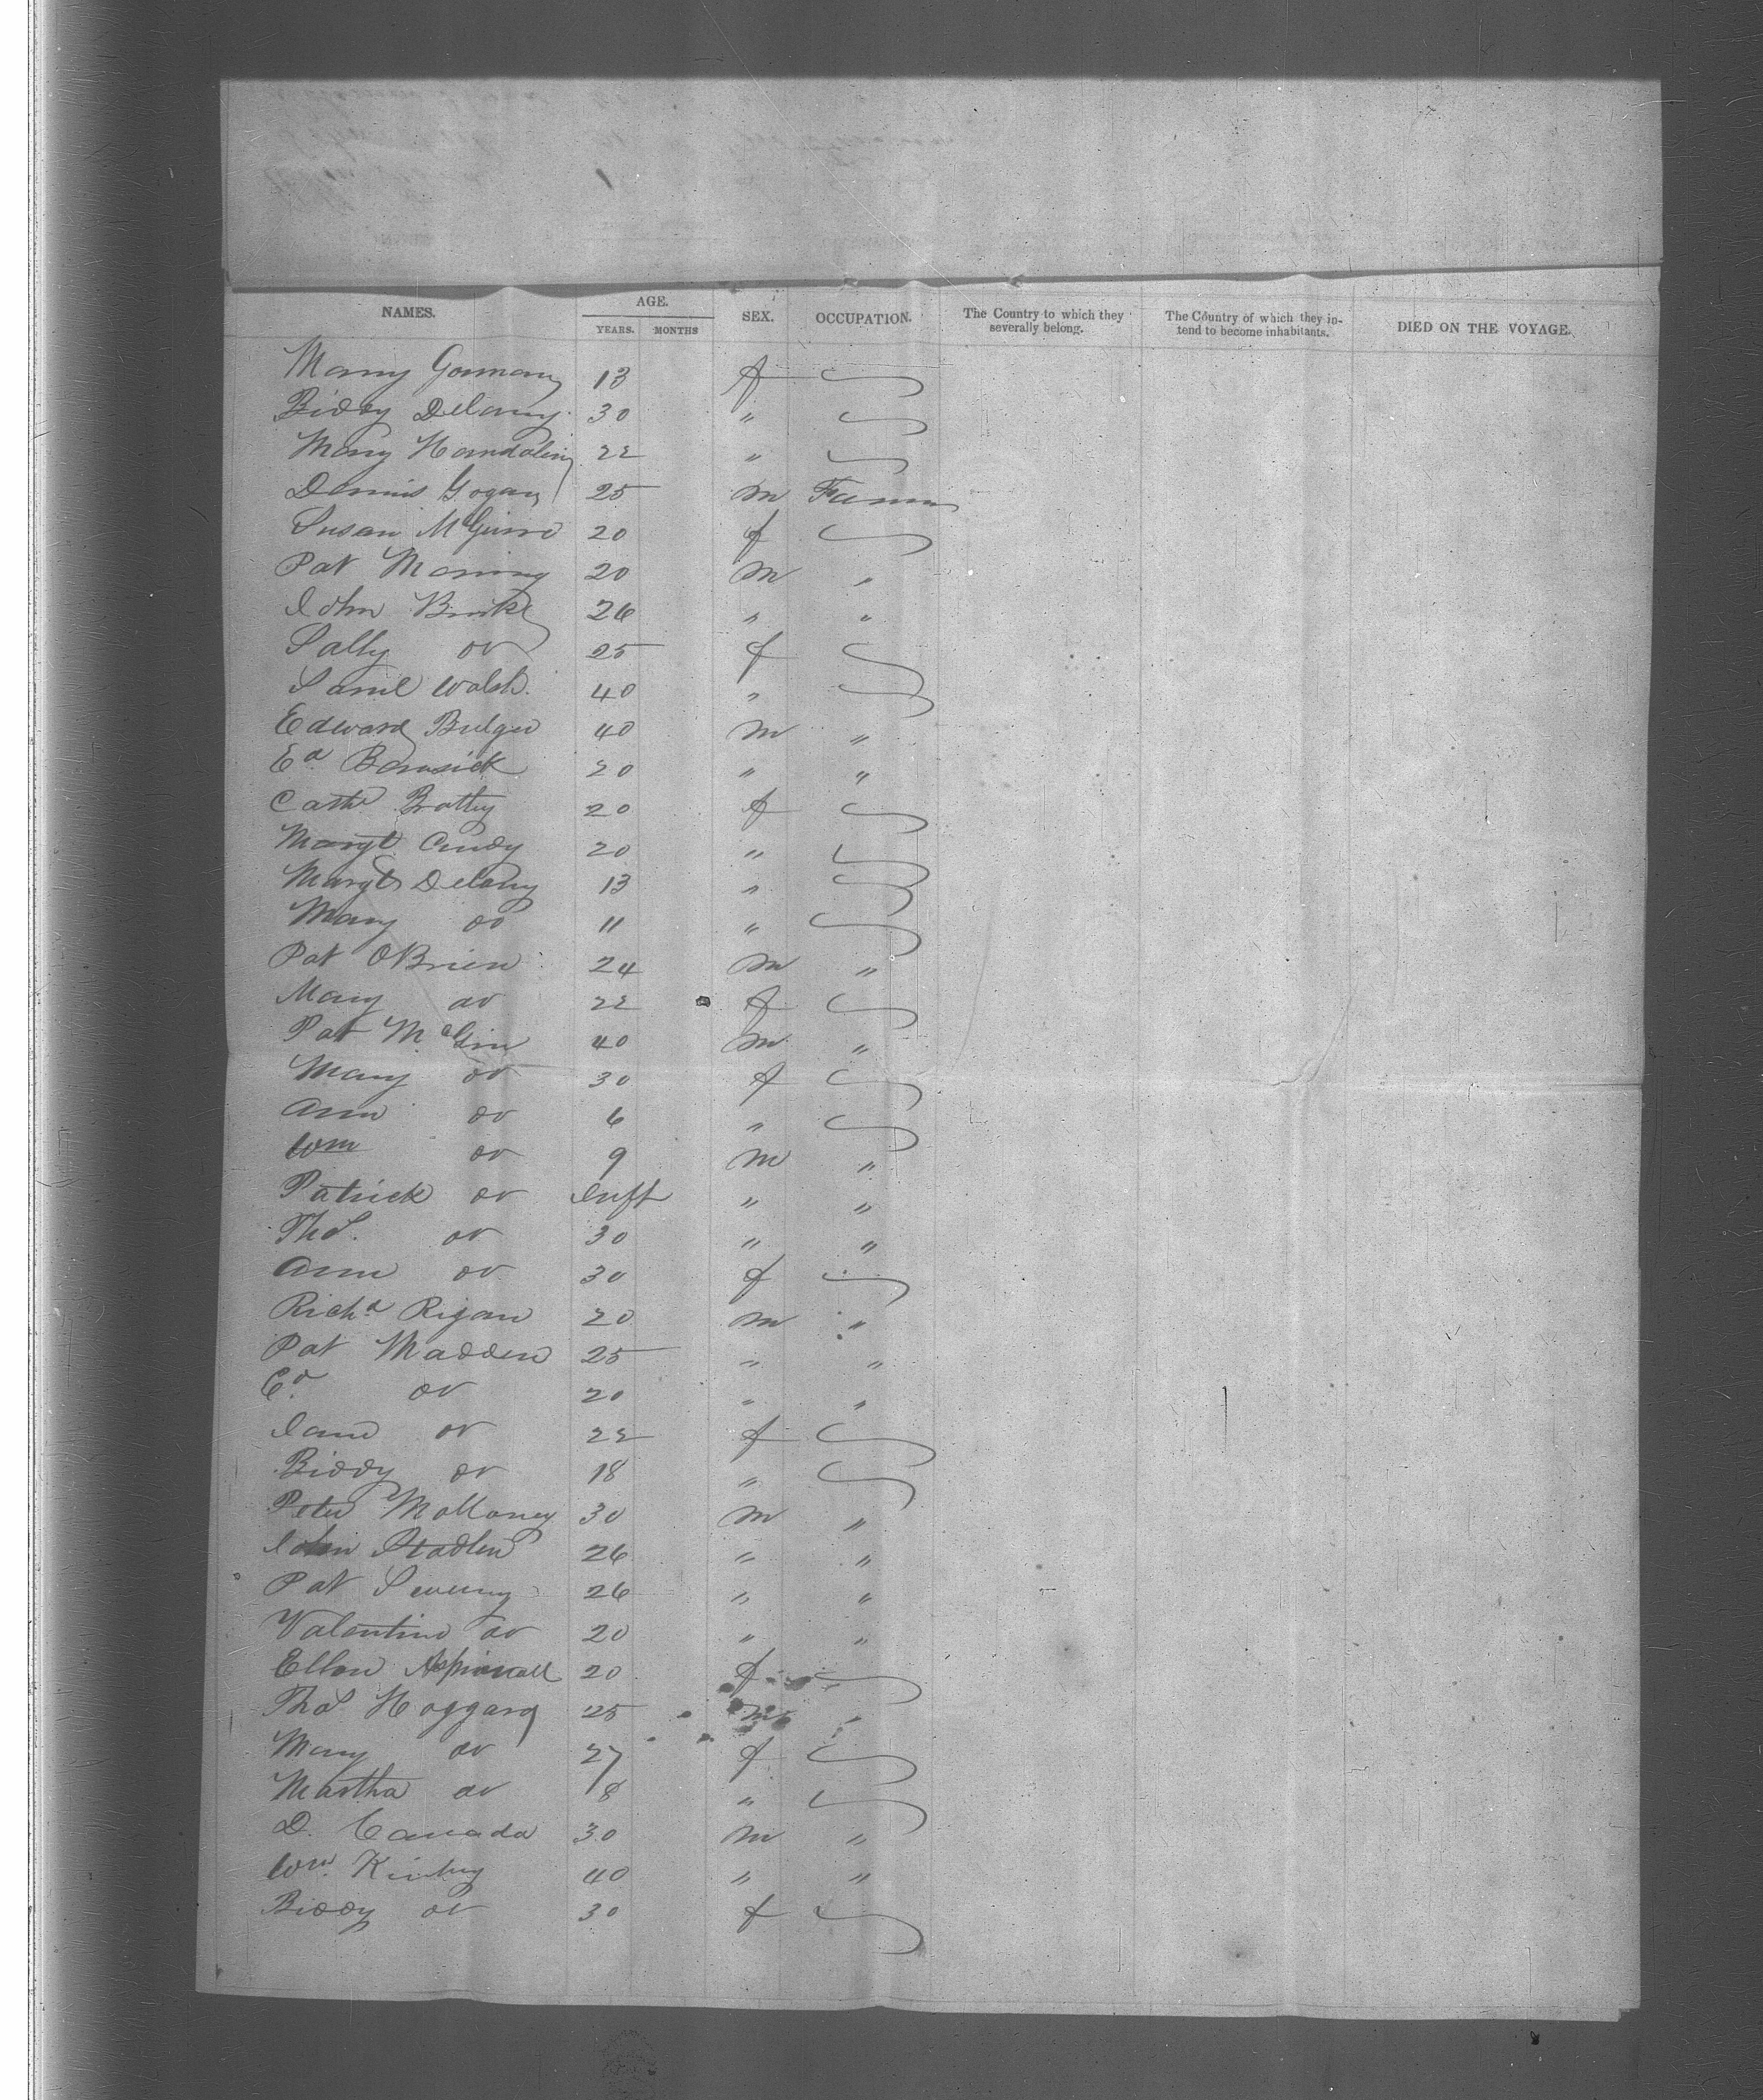 NAMES. AGE. SEX. OCCUPATION. The Country to which they severally belong. The Country of which they intend to become inhabitants. DIED ON THE VOYAGE.
YEARS. MONTHS
Mary Gorman 13 f
Biddy Delany 30 "
Mary 22 "
Dennis Gogan 25 m Farmer
Susan McGuire 20 f
Pat 20 m "
John Burke 26 " "
Sally do 25 f
Walsh 40 "
Edward Bulger 40 m "
Ed. 20 " "
Cathe 20 f
Margt. 20 "
Margt Delany 13 "
Mary do 11 "
Pat OBrien 24 m "
Mary do 22 f
Pat McGinn 40 m "
Mary do 30 f
Ann do 6 "
Wm do 9 m "
Patrick do Inft " "
Thos. do 30 " "
Ann do 30 f
Richd Rigan 20 m "
Pat Madden 25 " "
Ed. do 20 " "
Jane do 22 f
Biddy do 18 "
Peter Mollaney 30 m "
John 26 " "
Pat Sweeny 26 " "
Valentine do 20 " "
Ellen Aspinall 20 f
Thos Haggard 25 m "
Mary do 27 f
Martha do 8 "
D. Canada 30 m "
Wm. 40 " "
Biddy do 30 f